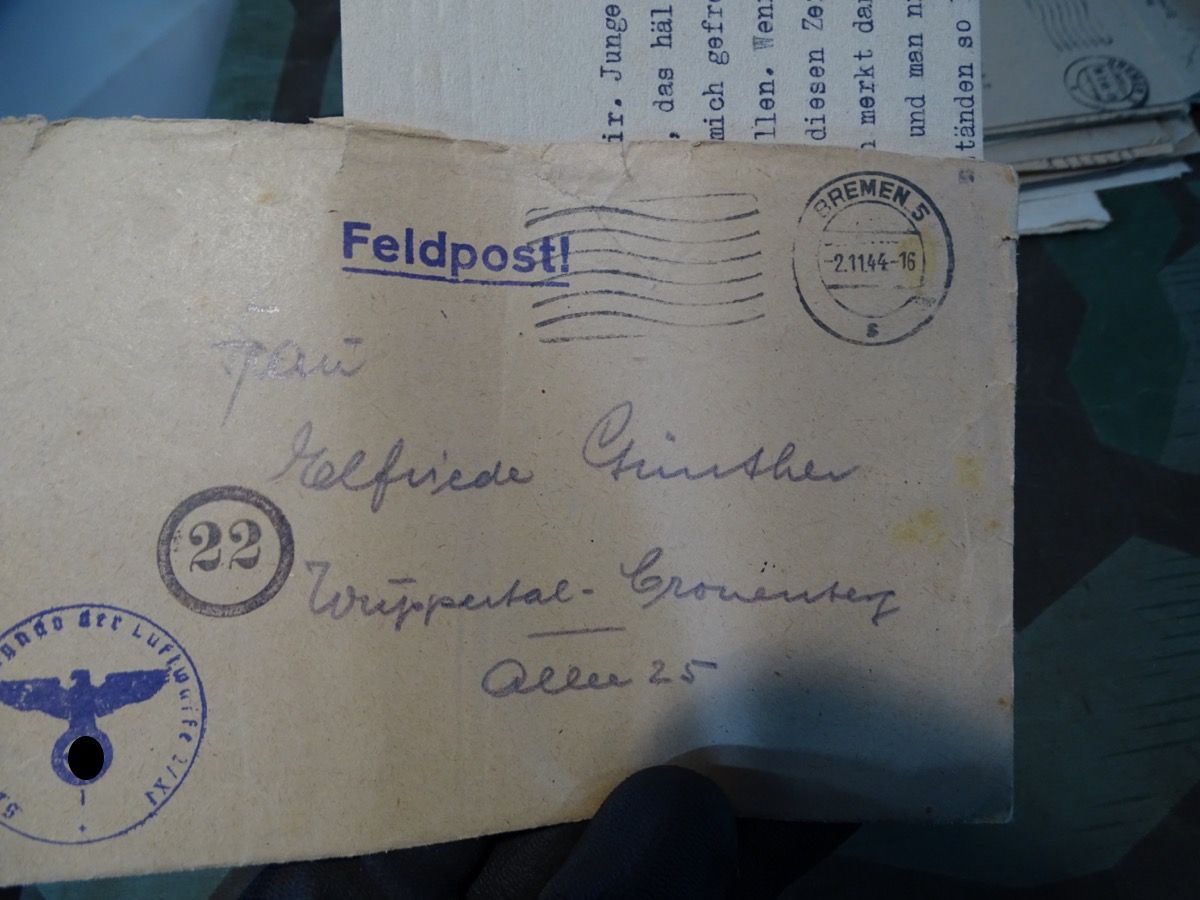 ir. Junge
, das häl
mich gefre
llen. Wen
diesen Ze
merkt dar
und man n
tänden so
Feldpost!
BREMEN 5
-2.11.44-16
s
Frau
Elfriede Günther
22
Wuppertal-Cronenberg
25
der Luftwaffe 2/XI